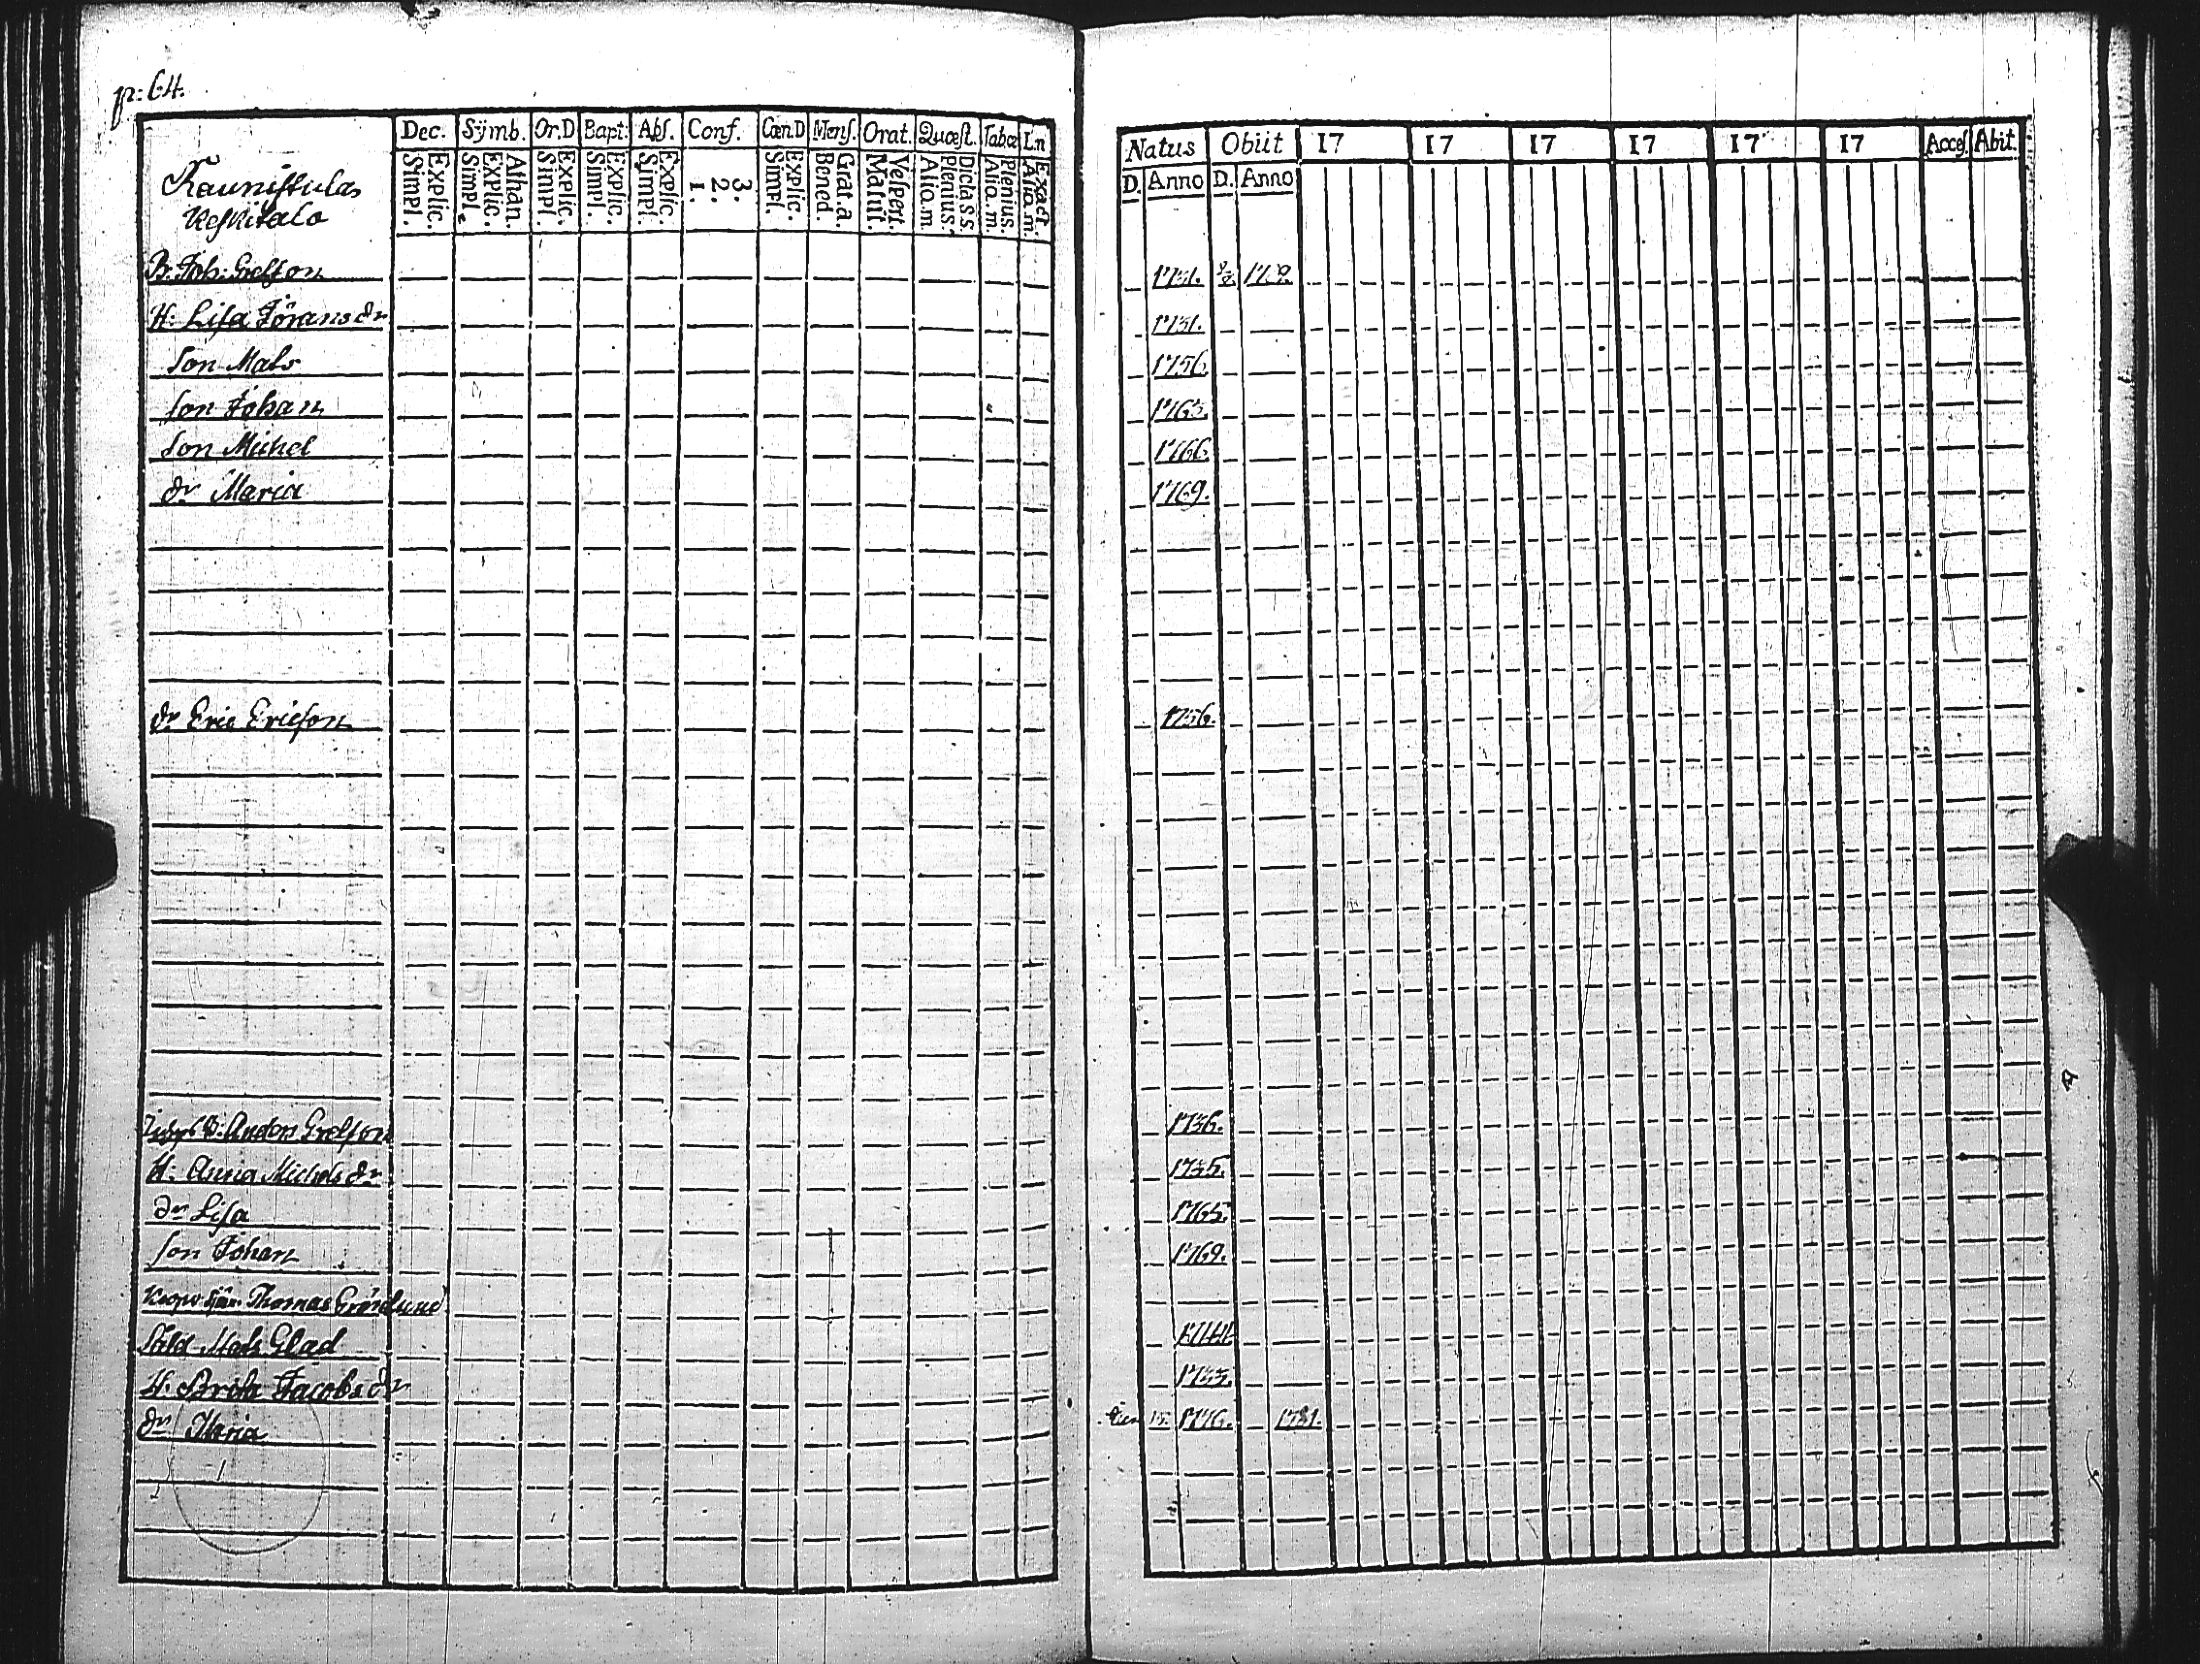 p: 64.
Dec. Sÿmb. Or.D Bapt: Abſ. Conf. Cœn.D Menſ. Orat. Quæſt. Tab.œ L.n
Explic. Simpl. Athan. Explic. Simpl. Explic. Simpl. Explic. Simpl. Explic. Simpl. 3. 2. 1. Explic. Simpl. Grat.a. Bened. Veſpert. Matut. Dicta S.S. Plenius. Alio.m. Plenius. Alio.m. Exact. Alio.m.
Kauniſkulas
Keſkitalo
B. Joh: Grelſson
H: Liſa Jöransdr
Son Mats
Son Johan
Son Michel
dr Maria
dr Eric Ericſon
B: Anders Grelſson
H: Anna Michelsdr
dr Liſa
Son Johan
Thomas Grönlund
Såld Mats Glad
H: Brita Jacobsdr
dr Maria
Natus Obiit 17 17 17 17 17 17 Acceſ. Abit.
D. Anno D. Anno
1731.
1731.
1756.
1763.
1766.
1769.
1756.
1736.
1735.
1765.
1769.
1744.
1733.
1776. 1781.